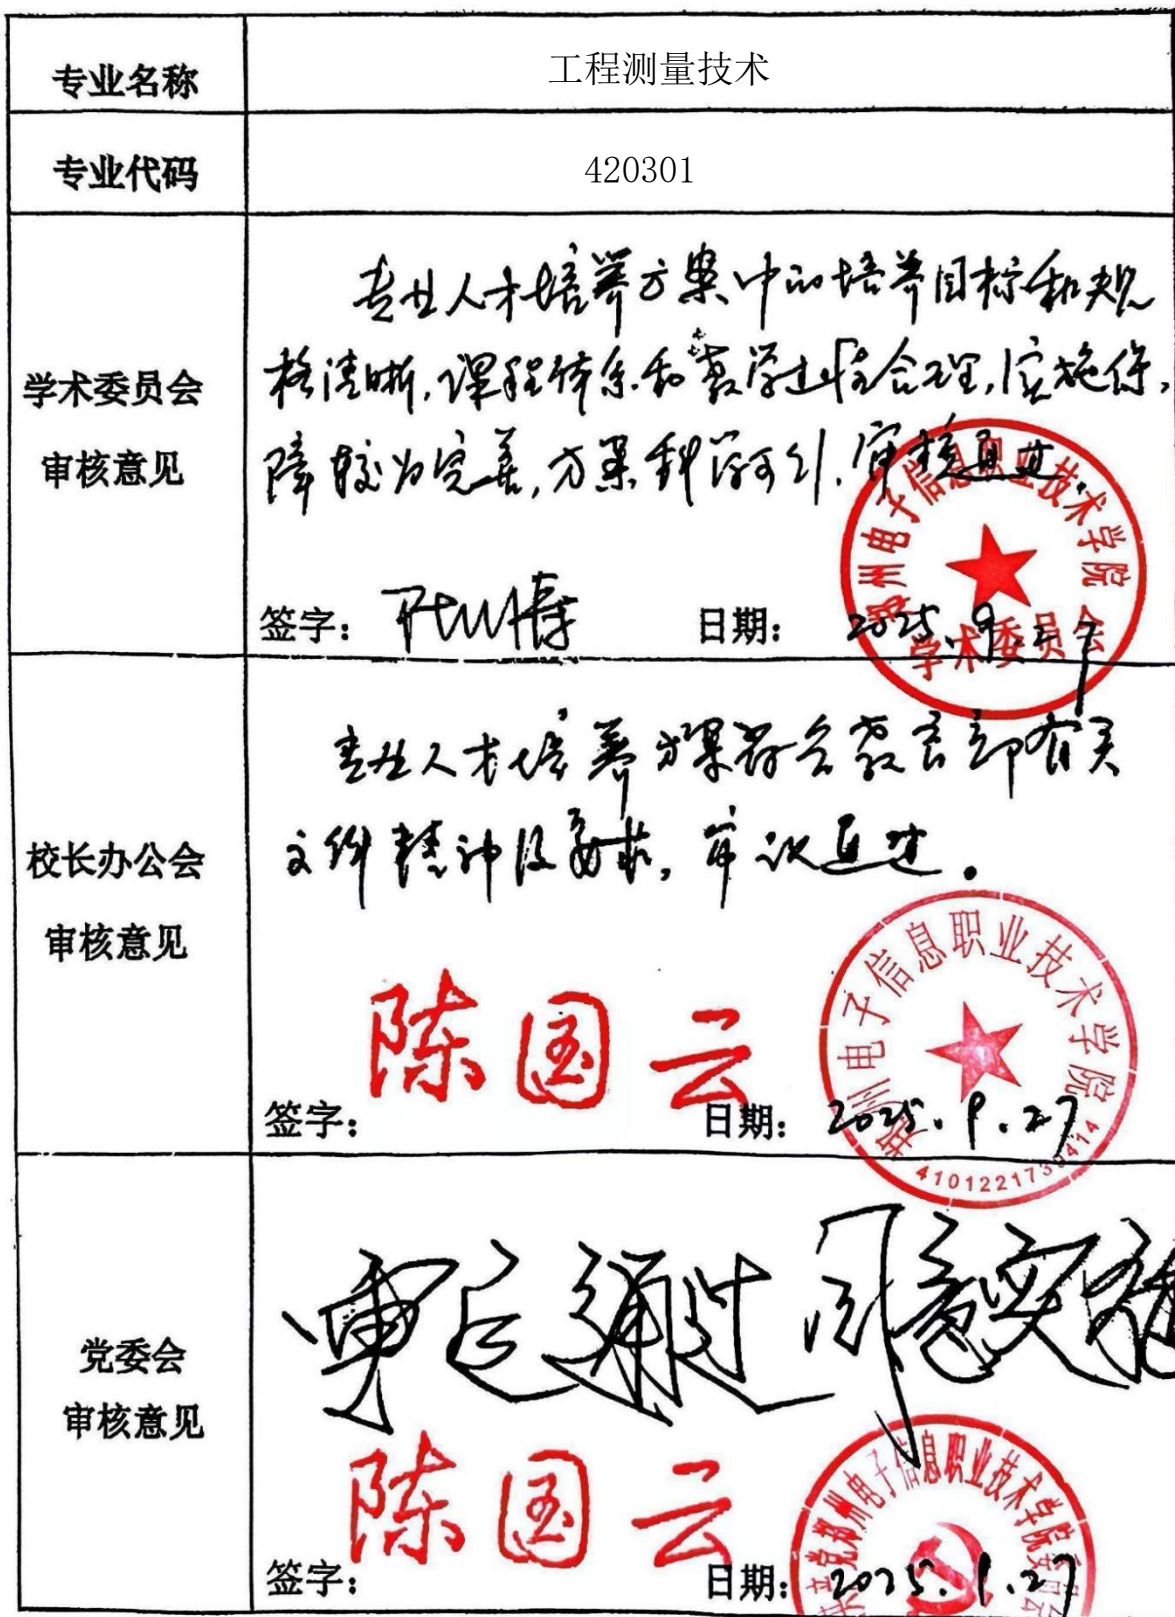 专业名称
工程测量技术
专业代码
420301
学术委员会
审核意见
专业人才培养方案中的培养目标和规
格清晰,课程体系和教学进程合理,实施保
障较为完善,方案科学可行,审核通过。
签字:
日期:
2025.9.27
郑州电子信息职业技术学院
学术委员会
校长办公会
审核意见
专业人才培养方案符合教育部有关
文件精神及要求,审议通过。
陈国云
签字:
日期:
2025.9.27
郑州电子信息职业技术学院
党委会
审核意见
审定通过 同意实施
陈国云
签字:
日期:
2025.9.27
郑州电子信息职业技术学院